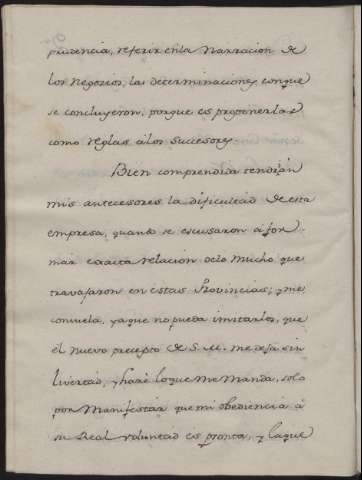 prudencia, referir en la Narracion de
los Negocios, las determinaciones conque
se concluyeron, porque es proponerlas
como reglas álos Succesores.
Bien comprendida tendrán
mis antecesores la dificultad de esta
empresa, quando se escusaron á for
már exácta relacion delo mucho que
travajaron en estas Provincias; y me
consuela, yaque no pueda imitarlos, que
él nuevo precepto de S. M. me deja sin
livertad, y haré loque me manda, solo
por manifestár que mi obediencia á
su Real voluntad es pronta, y la que